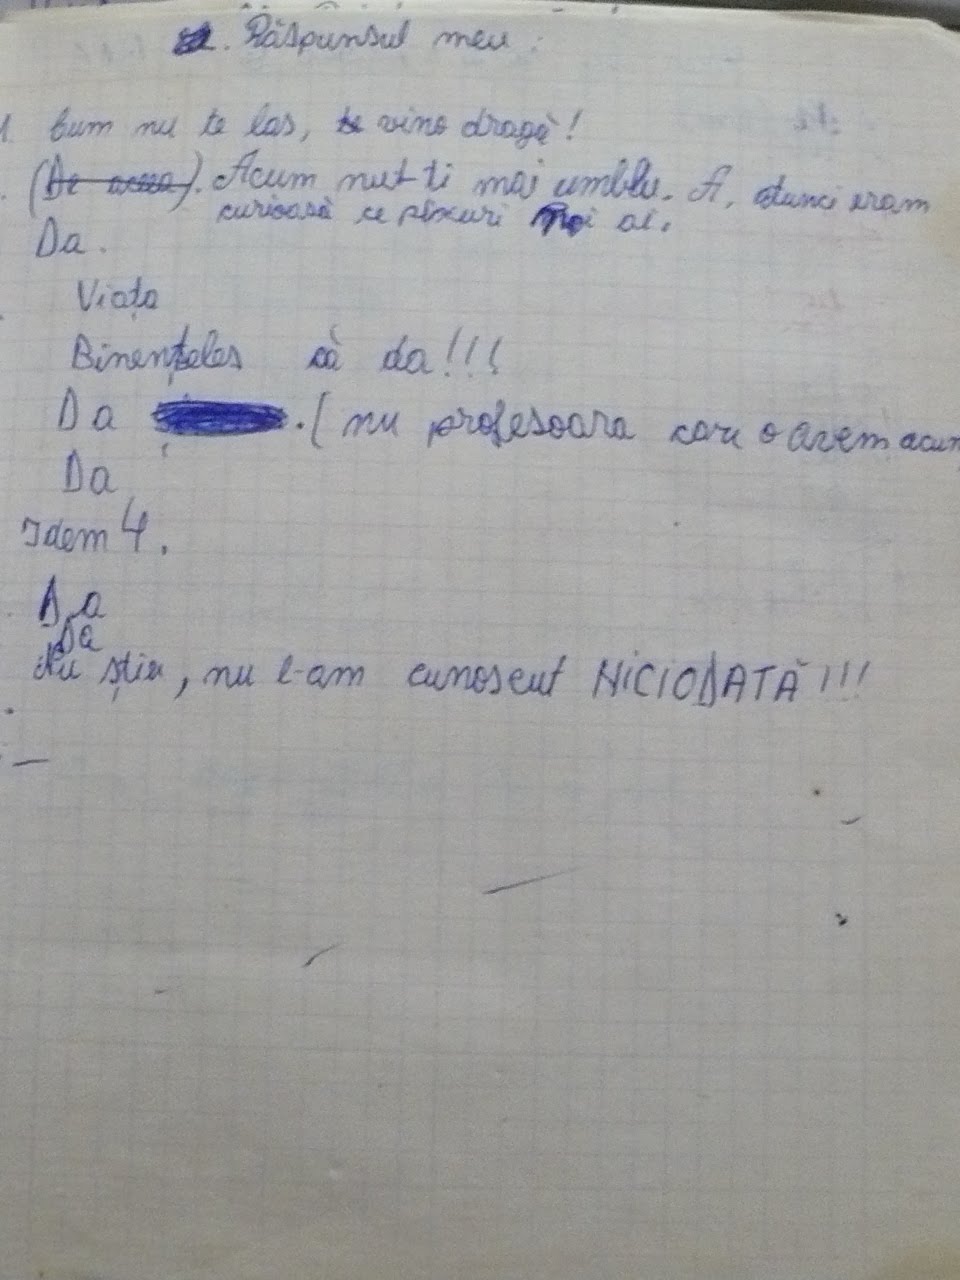 Răspunsul meu:
1. Cum nu te las, vino dragă!
Acum nu-ți mai umblu. A, atunci eram
curioasă ce pixuri mai ai.
Da.
Viața
Binențeles că da!!!
Da . (nu profesoara care o avem acum
Da
Idem 4.
Da
Da
Nu știu, nu l-am cunoscut NICIODATĂ!!!